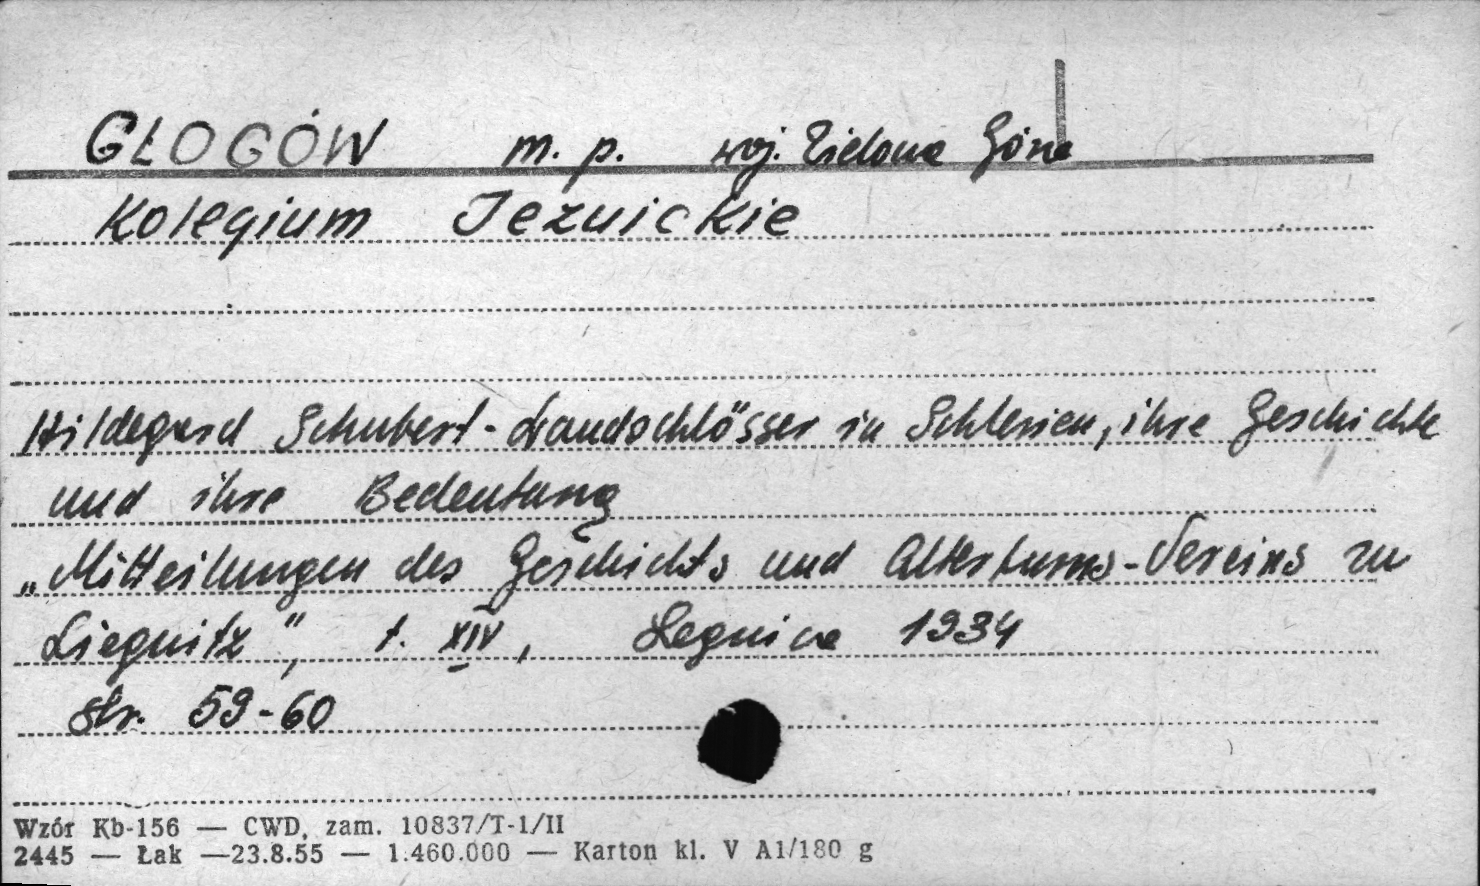 GŁOGÓW m. p. woj. Zielona Góra
Kolegium Jezuickie
Hildegard Schubert - Landschlösser in Schlesien, ihre Geschichte
und ihre Bedeutung
„Mitteilungen des Geschichts und Altertums-Vereins zu
Liegnitz”, t. XIV, Legnica 1934
str. 59-60
Wzór Kb-156 — CWD, zam. 10837/T-1/II
2445 — Łak —23.8.55 — 1.460.000 — Karton kl. V A1/180 g